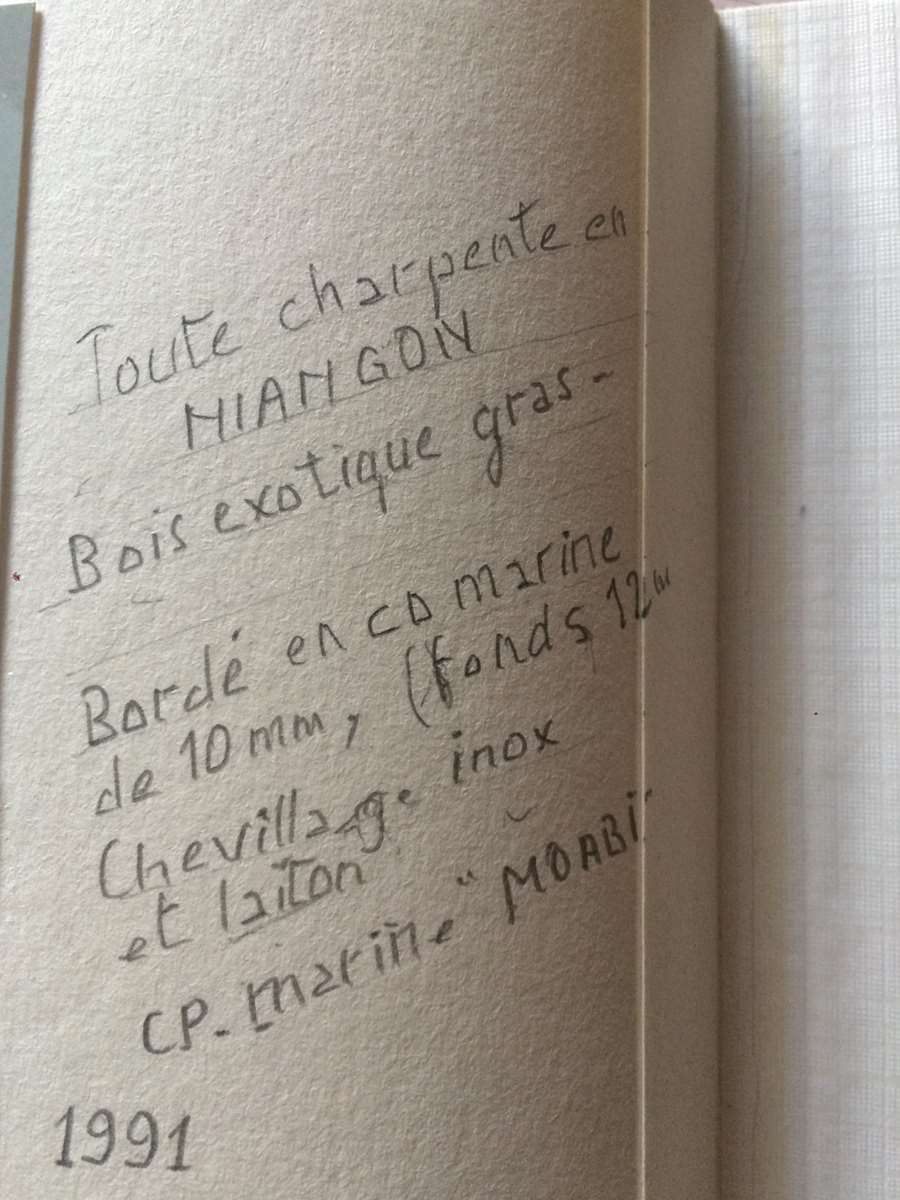 Toute charpente en
NIANGON
Bois exotique gras -
Bordé en CP marine
de 10 mm, (fonds 12
Chevillage inox
et laiton
CP- marine "MOABI"
1991